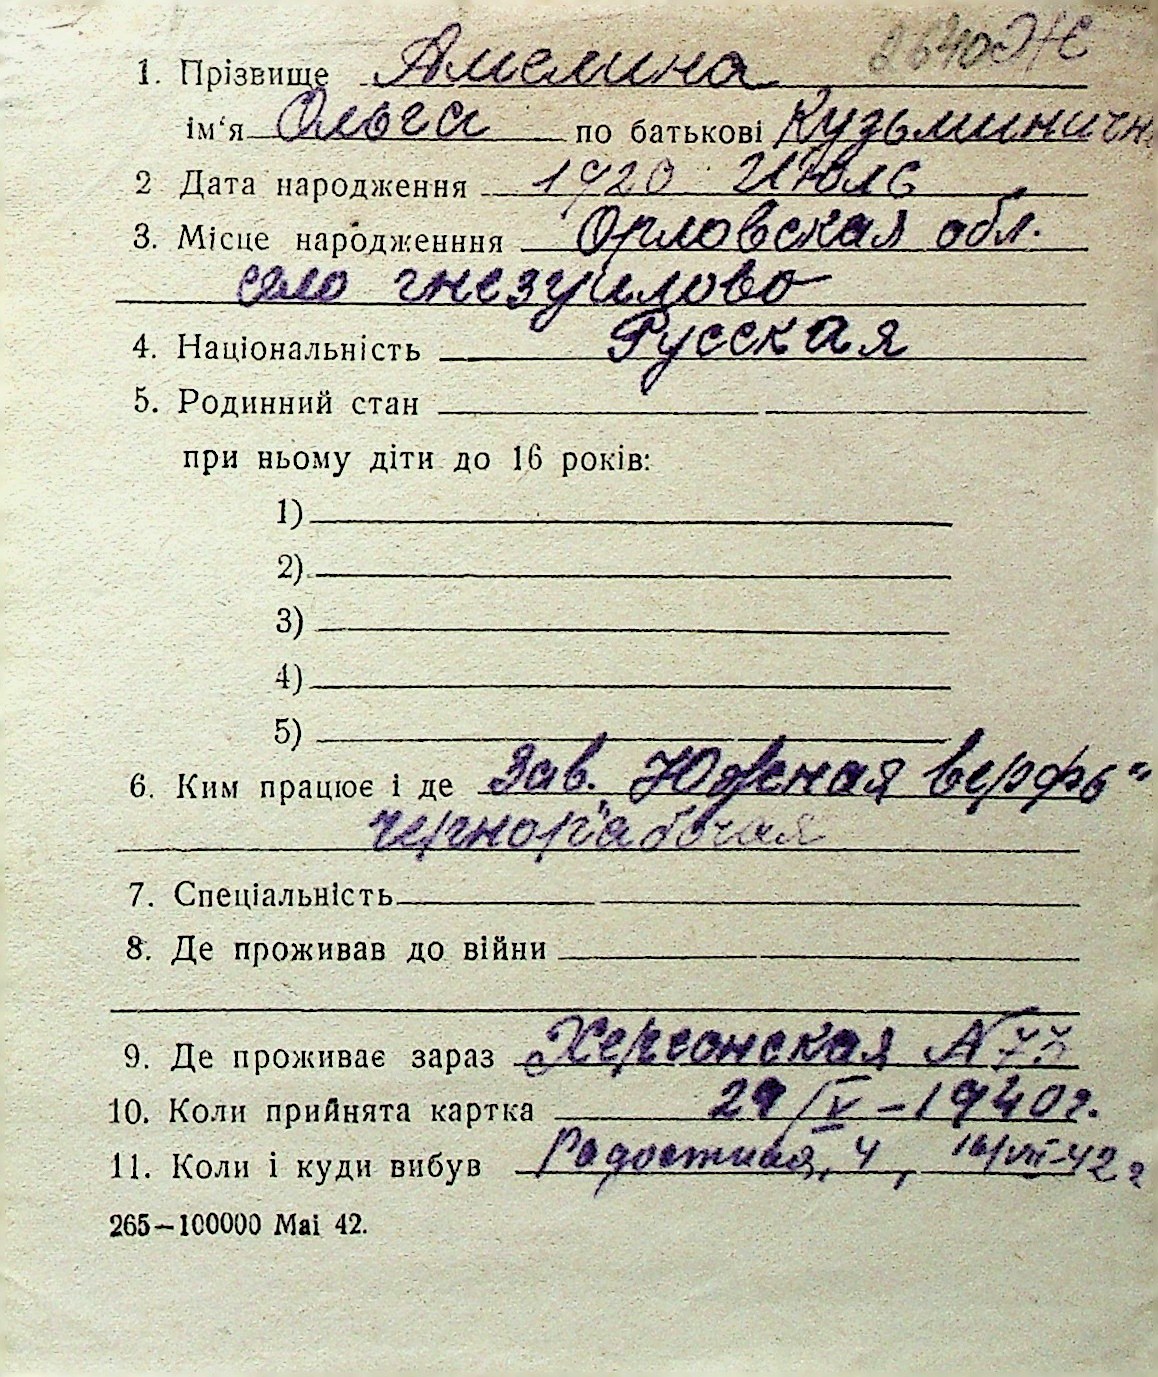 2640Ж
1. Прізвище Амелина
ім'я Ольга по батькові Кузьминичн
2 Дата народження 1920 Июль
3. Місце народженння Орловская обл.
село гнезуилово
4. Національність Русская
5. Родинний стан
при ньому діти до 16 років:
1)
2)
3)
4)
5)
6. Ким працює і де Зав. "Южная верфь"
чернорабочая
7. Спеціальність
8. Де проживав до війни
9. Де проживає зараз Херсонская №
10. Коли прийнята картка 29/IV-1940г.
11. Коли і куди вибув Радостная, 4, 16/VII-42 г
265—100000 Mai 42.